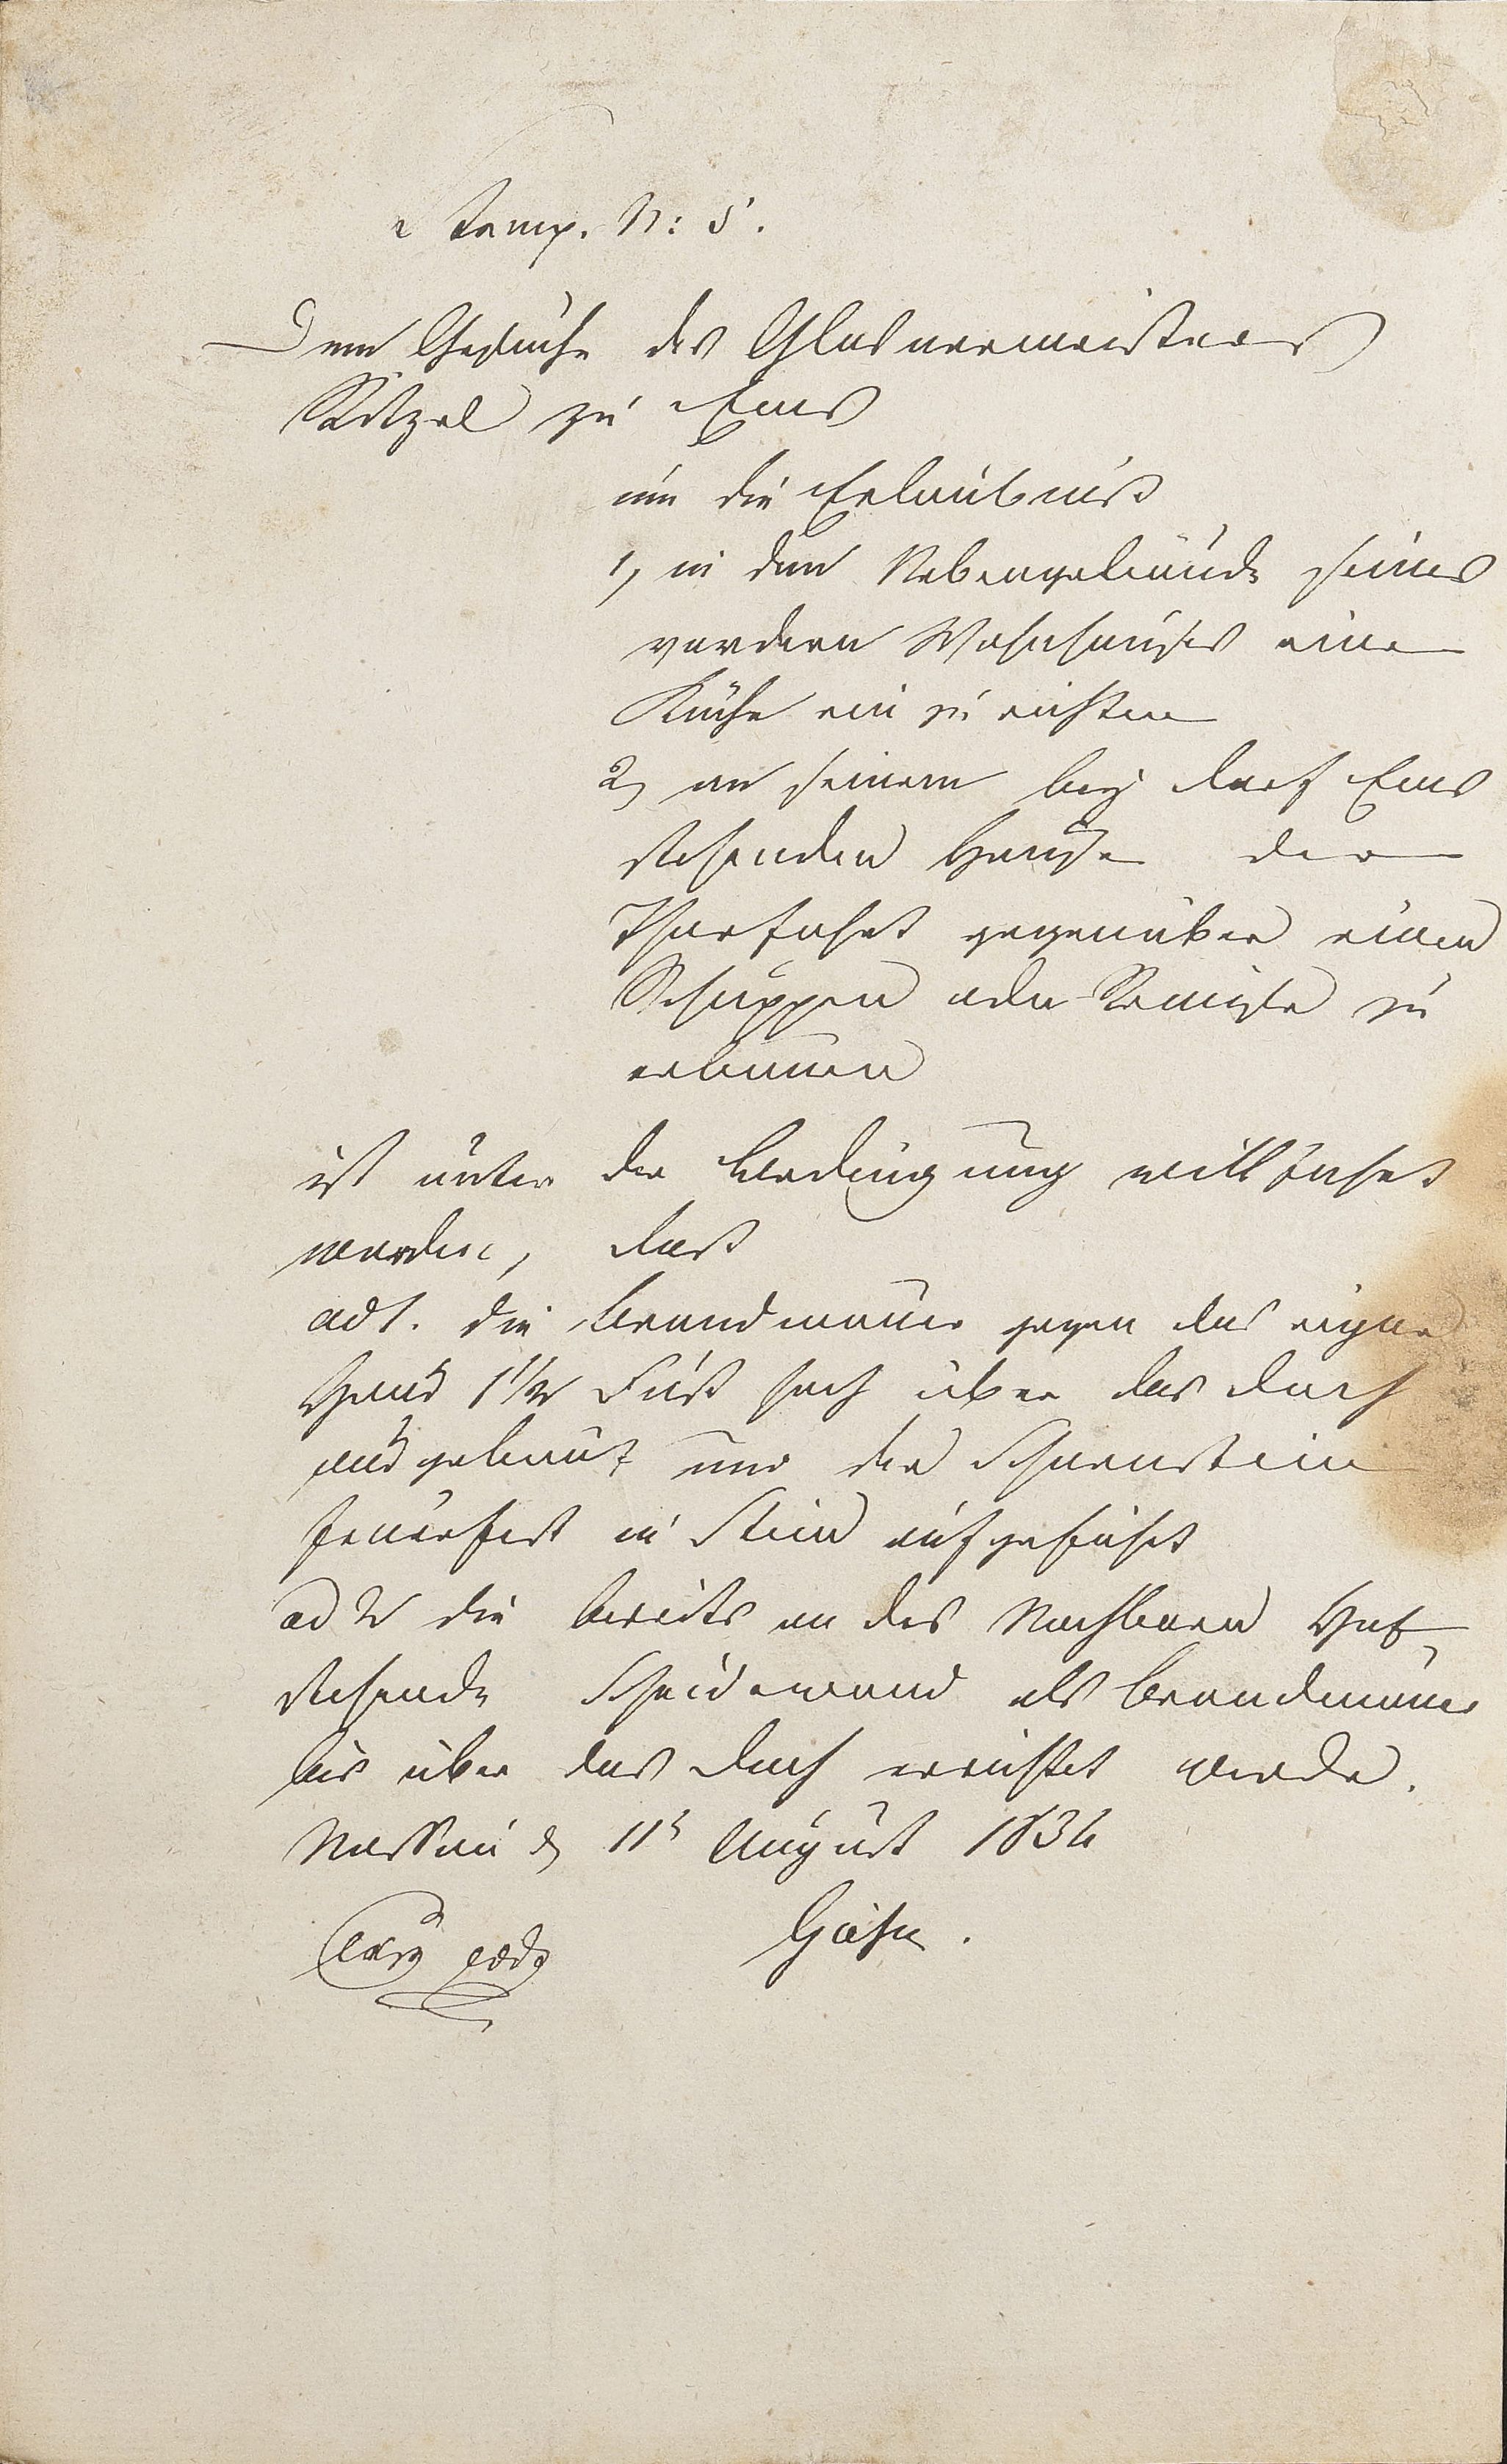 Stemp. N: 5.
Dem Gesuche des Glasermeisters
Ritzel zu Ems
um die Erlaubniß
1, in dem Nebengebäude seines
vordern Wohnhauses eine
Küche ein zu richten
2, an seinem bey Dorf Ems
stehenden Hause der
Thorfahrt gegenüber einen
Schuppen oder Remise zu
erbauen
ist unter der Bedingung willfahrt
worden, daß
ad 1. die Brandmauer gegen das eigene
Haus 1 1/2 Fuß hoch über das Dach
aus gebaut und der Schornstein
feuerfest in Stein aufgeführt
ad 2 die bereits an des Nachbarn Hof
stehende Scheidewand als Brandmauer
bis über das Dach errichtet werde.
Nassau d 11t August 1834